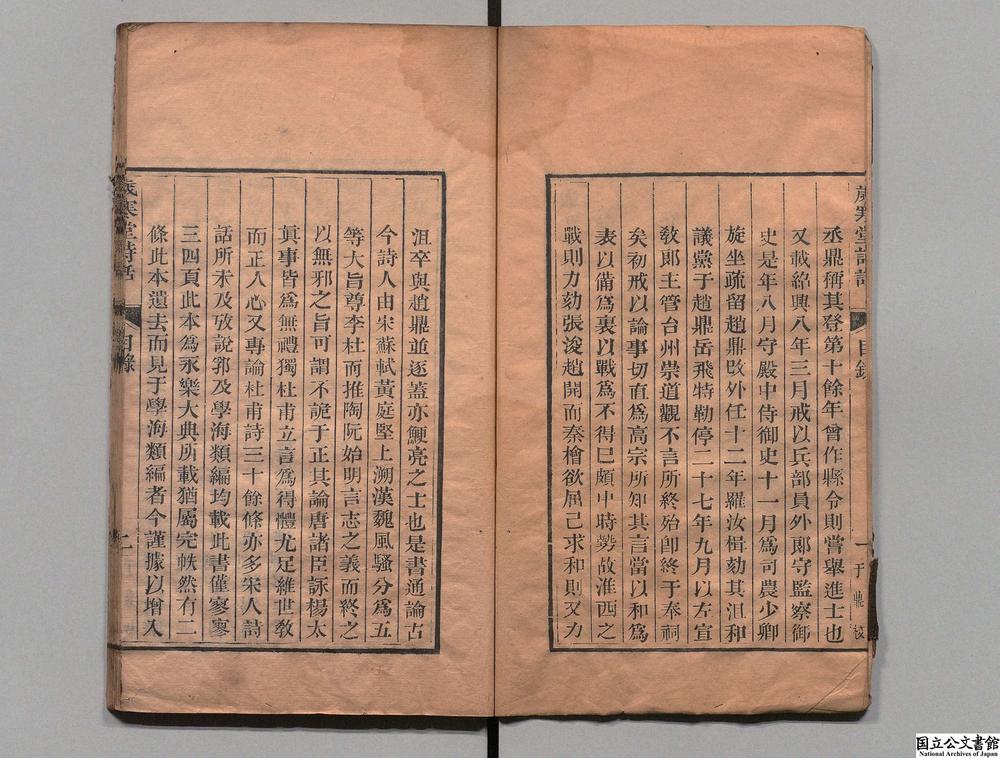 歲寒堂詩話
目錄
丞鼎稱其登第十餘年曾作縣令則嘗舉進士也
又載紹興八年三月戒以兵部員外郎守監察御
史是年八月守殿中侍御史十一月爲司農少卿
旋坐疏留趙鼎改外任十二年羅汝楫劾其沮和
議黨于趙鼎岳飛特勒停二十七年九月以左宣
敎郎主管台州崇道觀不言所終始卽終于奉祠
矣初戒以論事切直爲高宗所知其言當以和爲
表以備爲裏以戰爲不得已頗中時勢故淮西之
戰則力劾張浚趙開而秦檜欲屈己求和則又力
沮卒與趙鼎並逐蓋亦鯁亮之士也是書通論古
今詩人由宋蘇軾黃庭堅上溯漢魏風騷分爲五
等大旨尊李杜而推陶阮始明言志之義而終之
以無邪之旨可謂不詭于正其論唐諸臣詠楊太
眞事皆爲無禮獨杜甫立言爲得體尤足維世敎
而正人心又專論杜甫詩三十餘條亦多宋人詩
話所未及攷說郛及學海類編均載此書僅寥寥
三四頁此本爲永樂大典所載猶屬完帙然有二
條此本遺去而見于學海類編者今謹據以增入
歲寒堂詩話
目錄
二
国立公文書館
National Archives of Japan